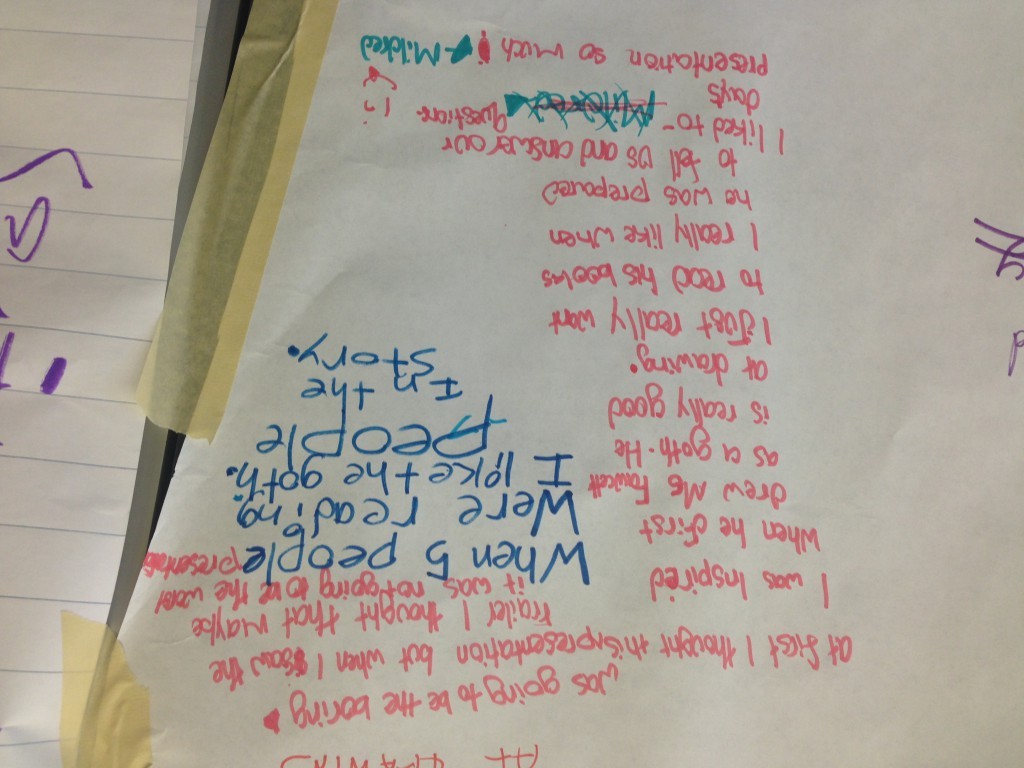 was going to be the boring
at first I thought this presentation but when I saw the
trailer I thought that maybe
it was not going to be the worst
presentation
I was Inspired
when he first
drew Ms Fawcett
as a goth. He
is really good
at drawing.
I Just really want
to read his books
I really like when
he was prepared
to tell us and answer our
Questions
I liked to-
days
presentation so much ! -Mildred
When 5 people
Were reading
I like the goth.
people
In the
story.